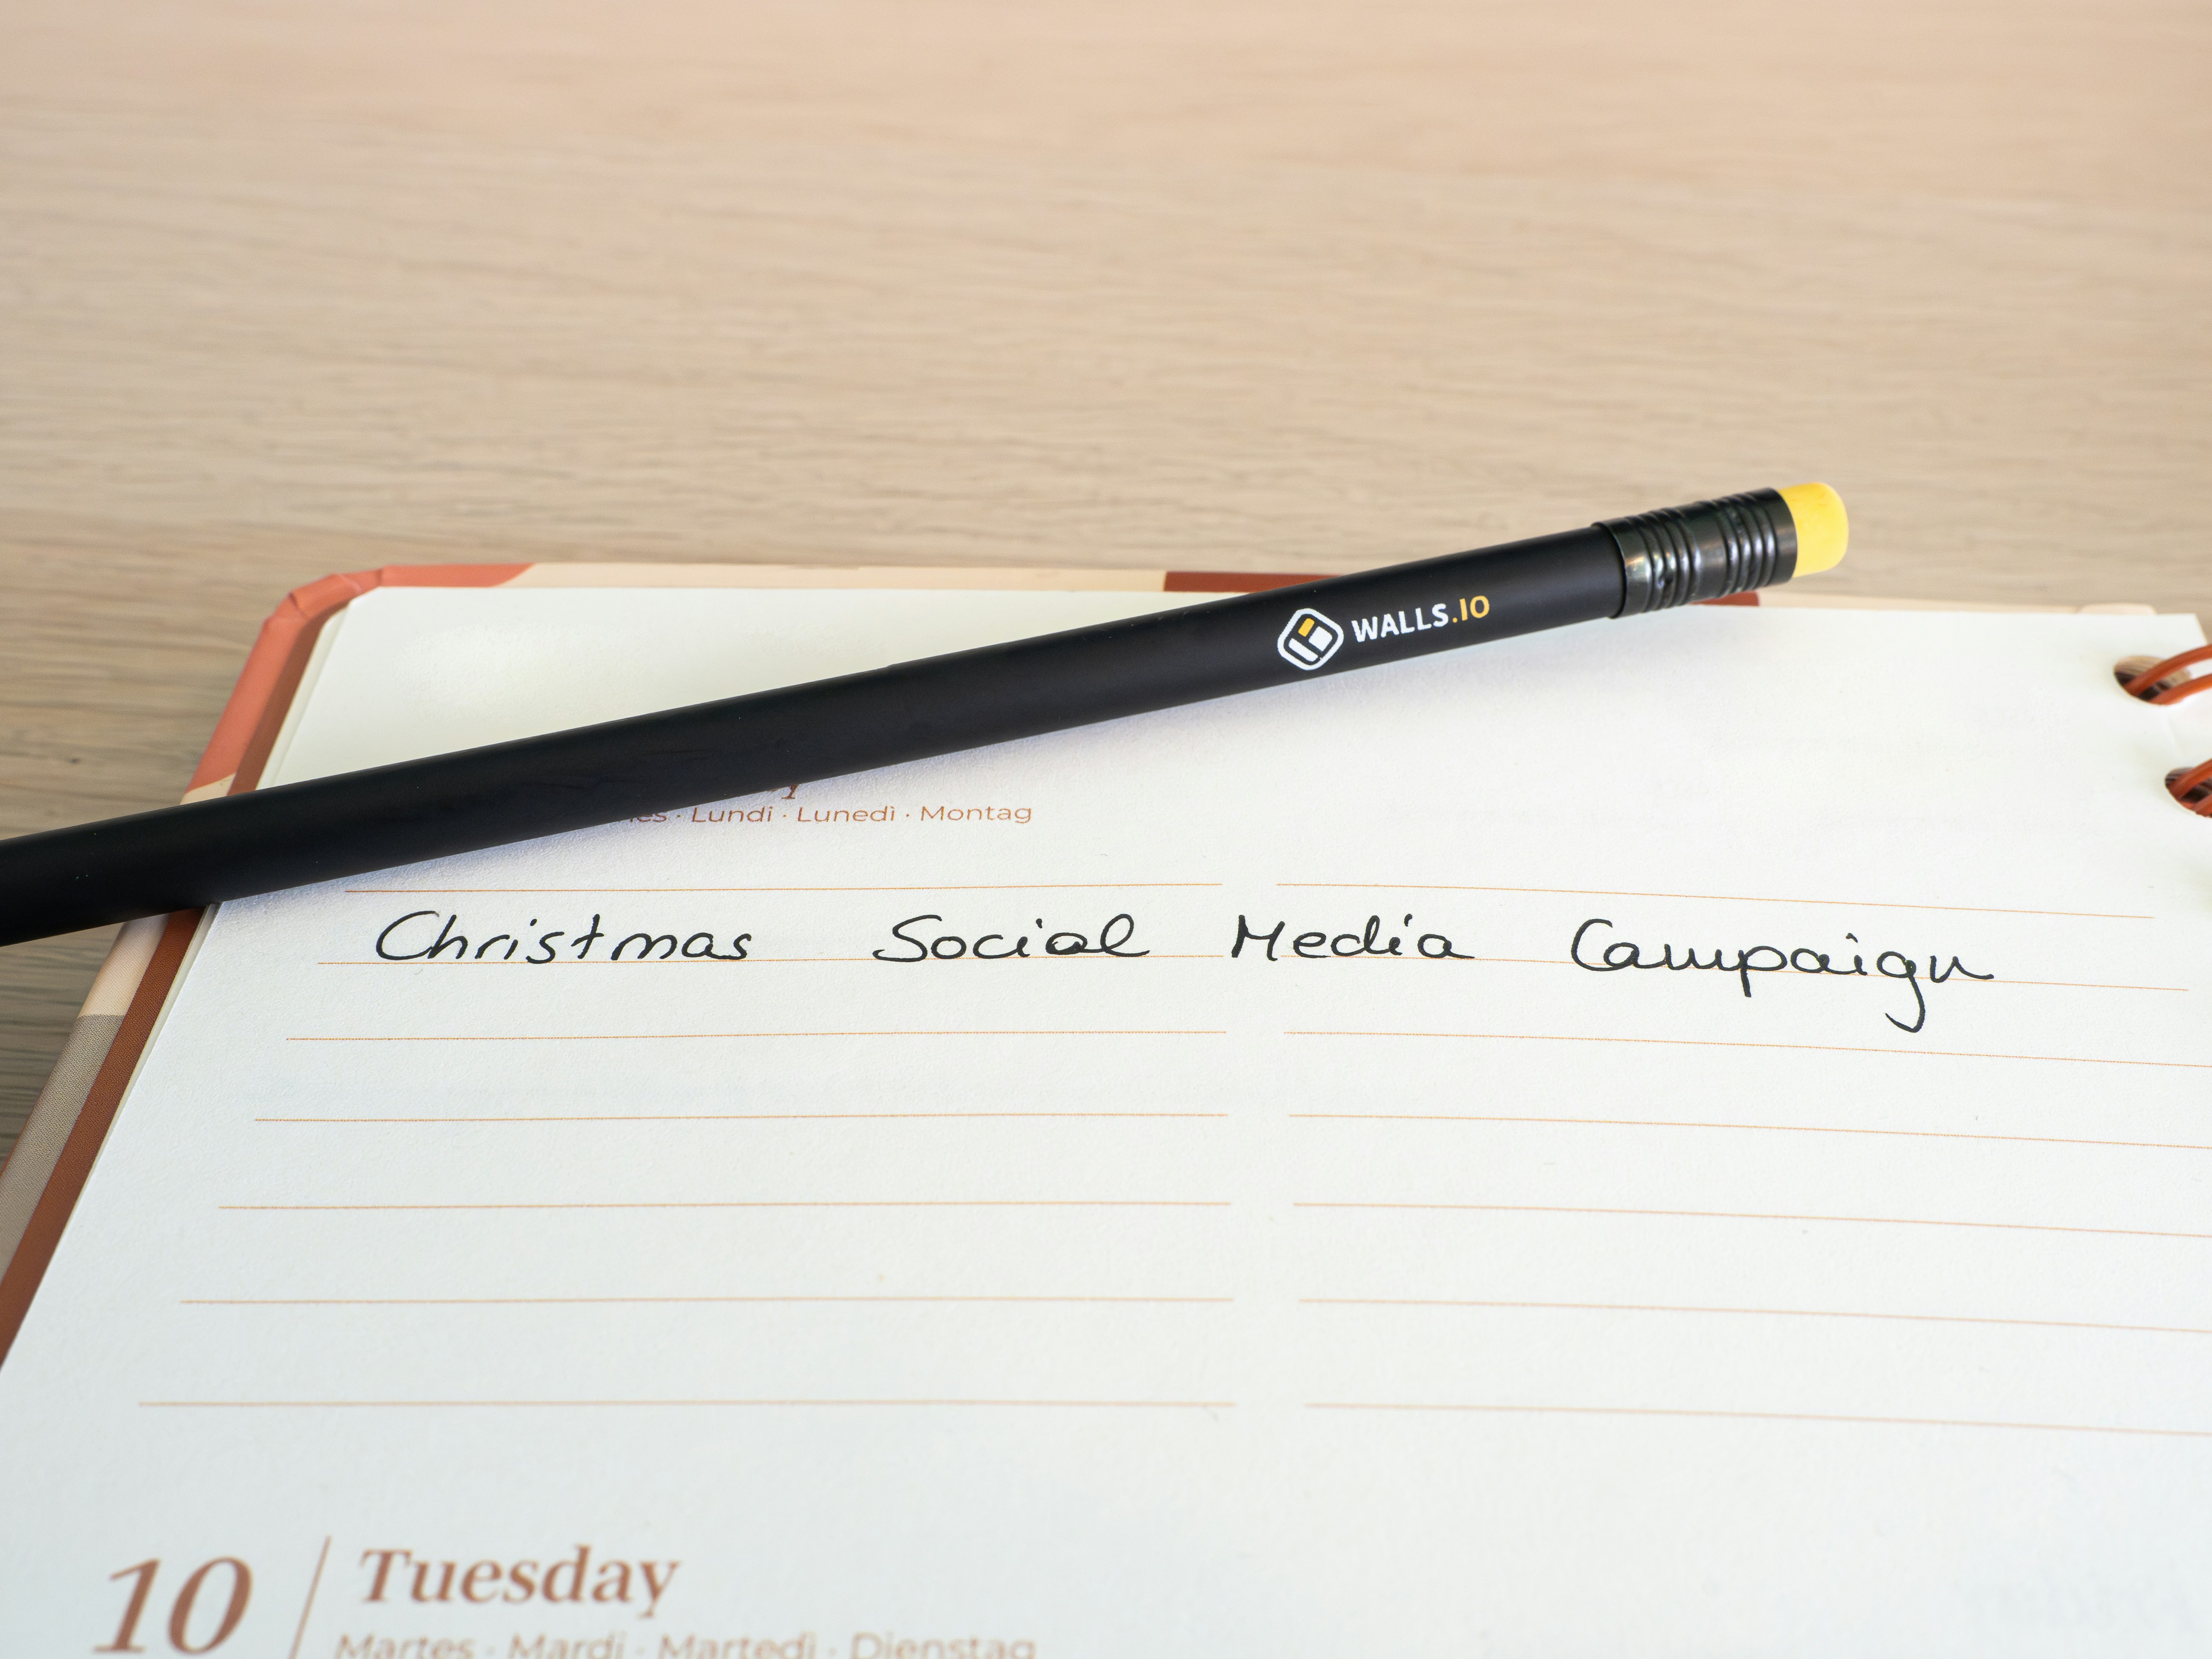 WALLS.IO
· Lundi · Lunedì · Montag
Christmas Social Media Campaign
10 Tuesday
Martes · Mardi · Martedì · Dienstag